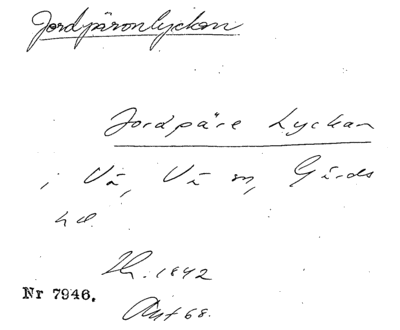 Jordpäronlyckan
Jordpäre Lyckan
i Vä, Vä sn, Gärds
hd.
Lh. 1842
Nr 7946.
Akt 68.